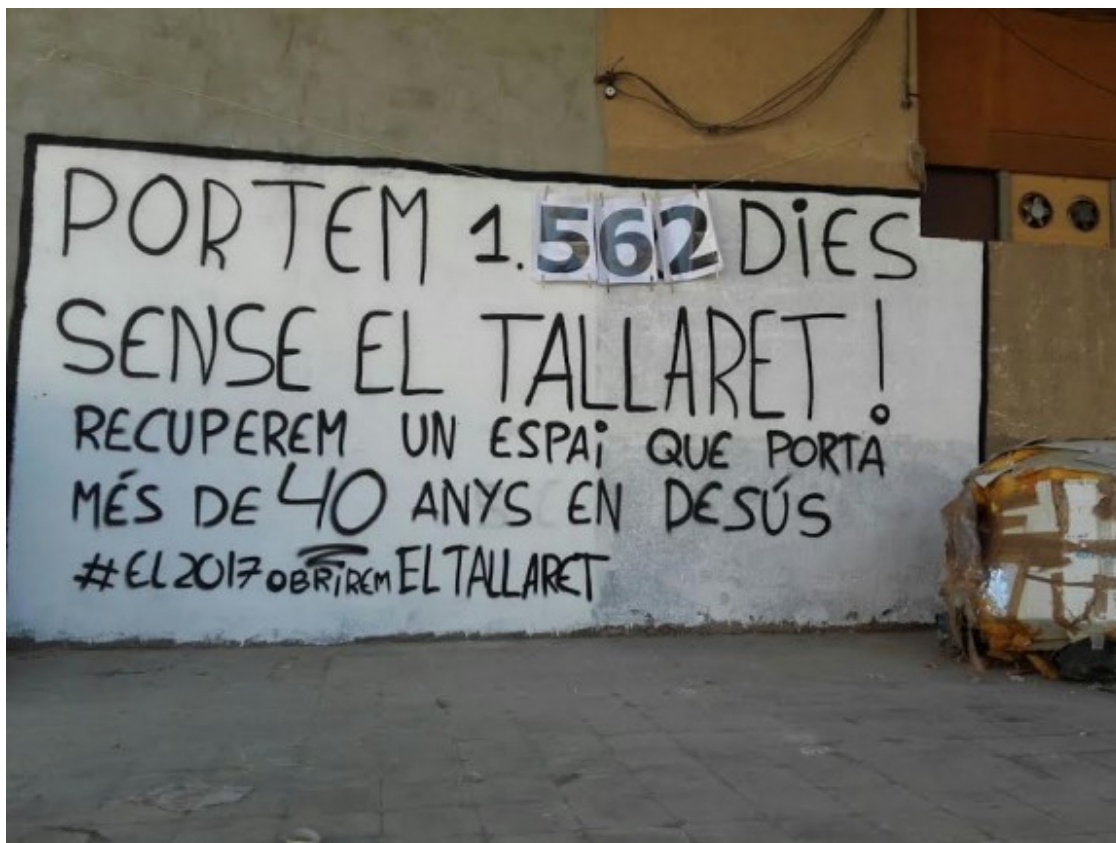 PORTEM 1.562 DiES
SENSE EL TALLARET!
RECUPEREM UN ESPAi QUE PORTA
MÉS DE 40 ANYS EN DESÚS
#EL2017 OBRiREM EL TALLARET